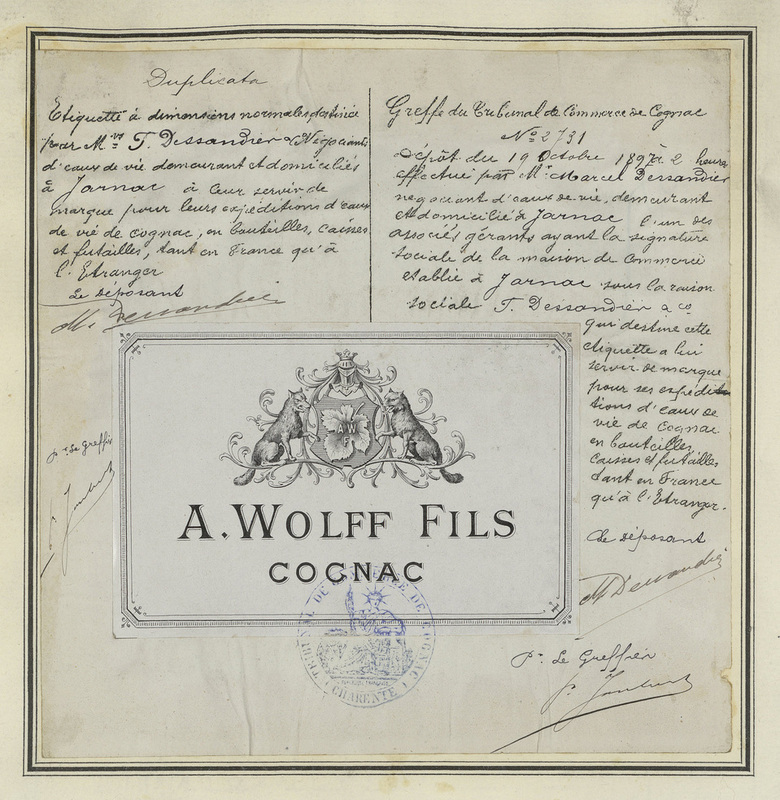 Duplicata
Etiquette à dimensions normales destinée
par Mrs T. Dessandier & Co Négociants
d'eaux de vie demeurant et domiciliés
à Jarnac à leur servir de
marque pour leurs expéditions d'eaux
de vie de cognac, en bouteilles, caisses
et futailles, tant en France qu'à
l'Etranger
Le Déposant
M. Dessandier
pr Le Greffier
Greffe du Tribunal de Commerce de Cognac
No 2731
Dépôt du 19 Octobre 1897 à 2 heures
effectué par Mr Marcel Dessandier
negociant d'eaux de vie, demeurant
et domicilié à Jarnac l'un des
associés gérants ayant la signature
sociale de la maison de Commerce
établie à Jarnac sous la raison
sociale T. Dessandier & Co
qui destine cette
étiquette a lui
servir de marque
pour ses expédi
tions d'eaux de
vie de Cognac
en bouteilles,
caisses et futailles
tant en France
qu'à l'Etranger.
Le déposant
M Dessandier
Pr Le Greffier
A W
F
A. WOLFF FILS
COGNAC
TRIBUNAL DE COMMERCE DE COGNAC
(CHARENTE)